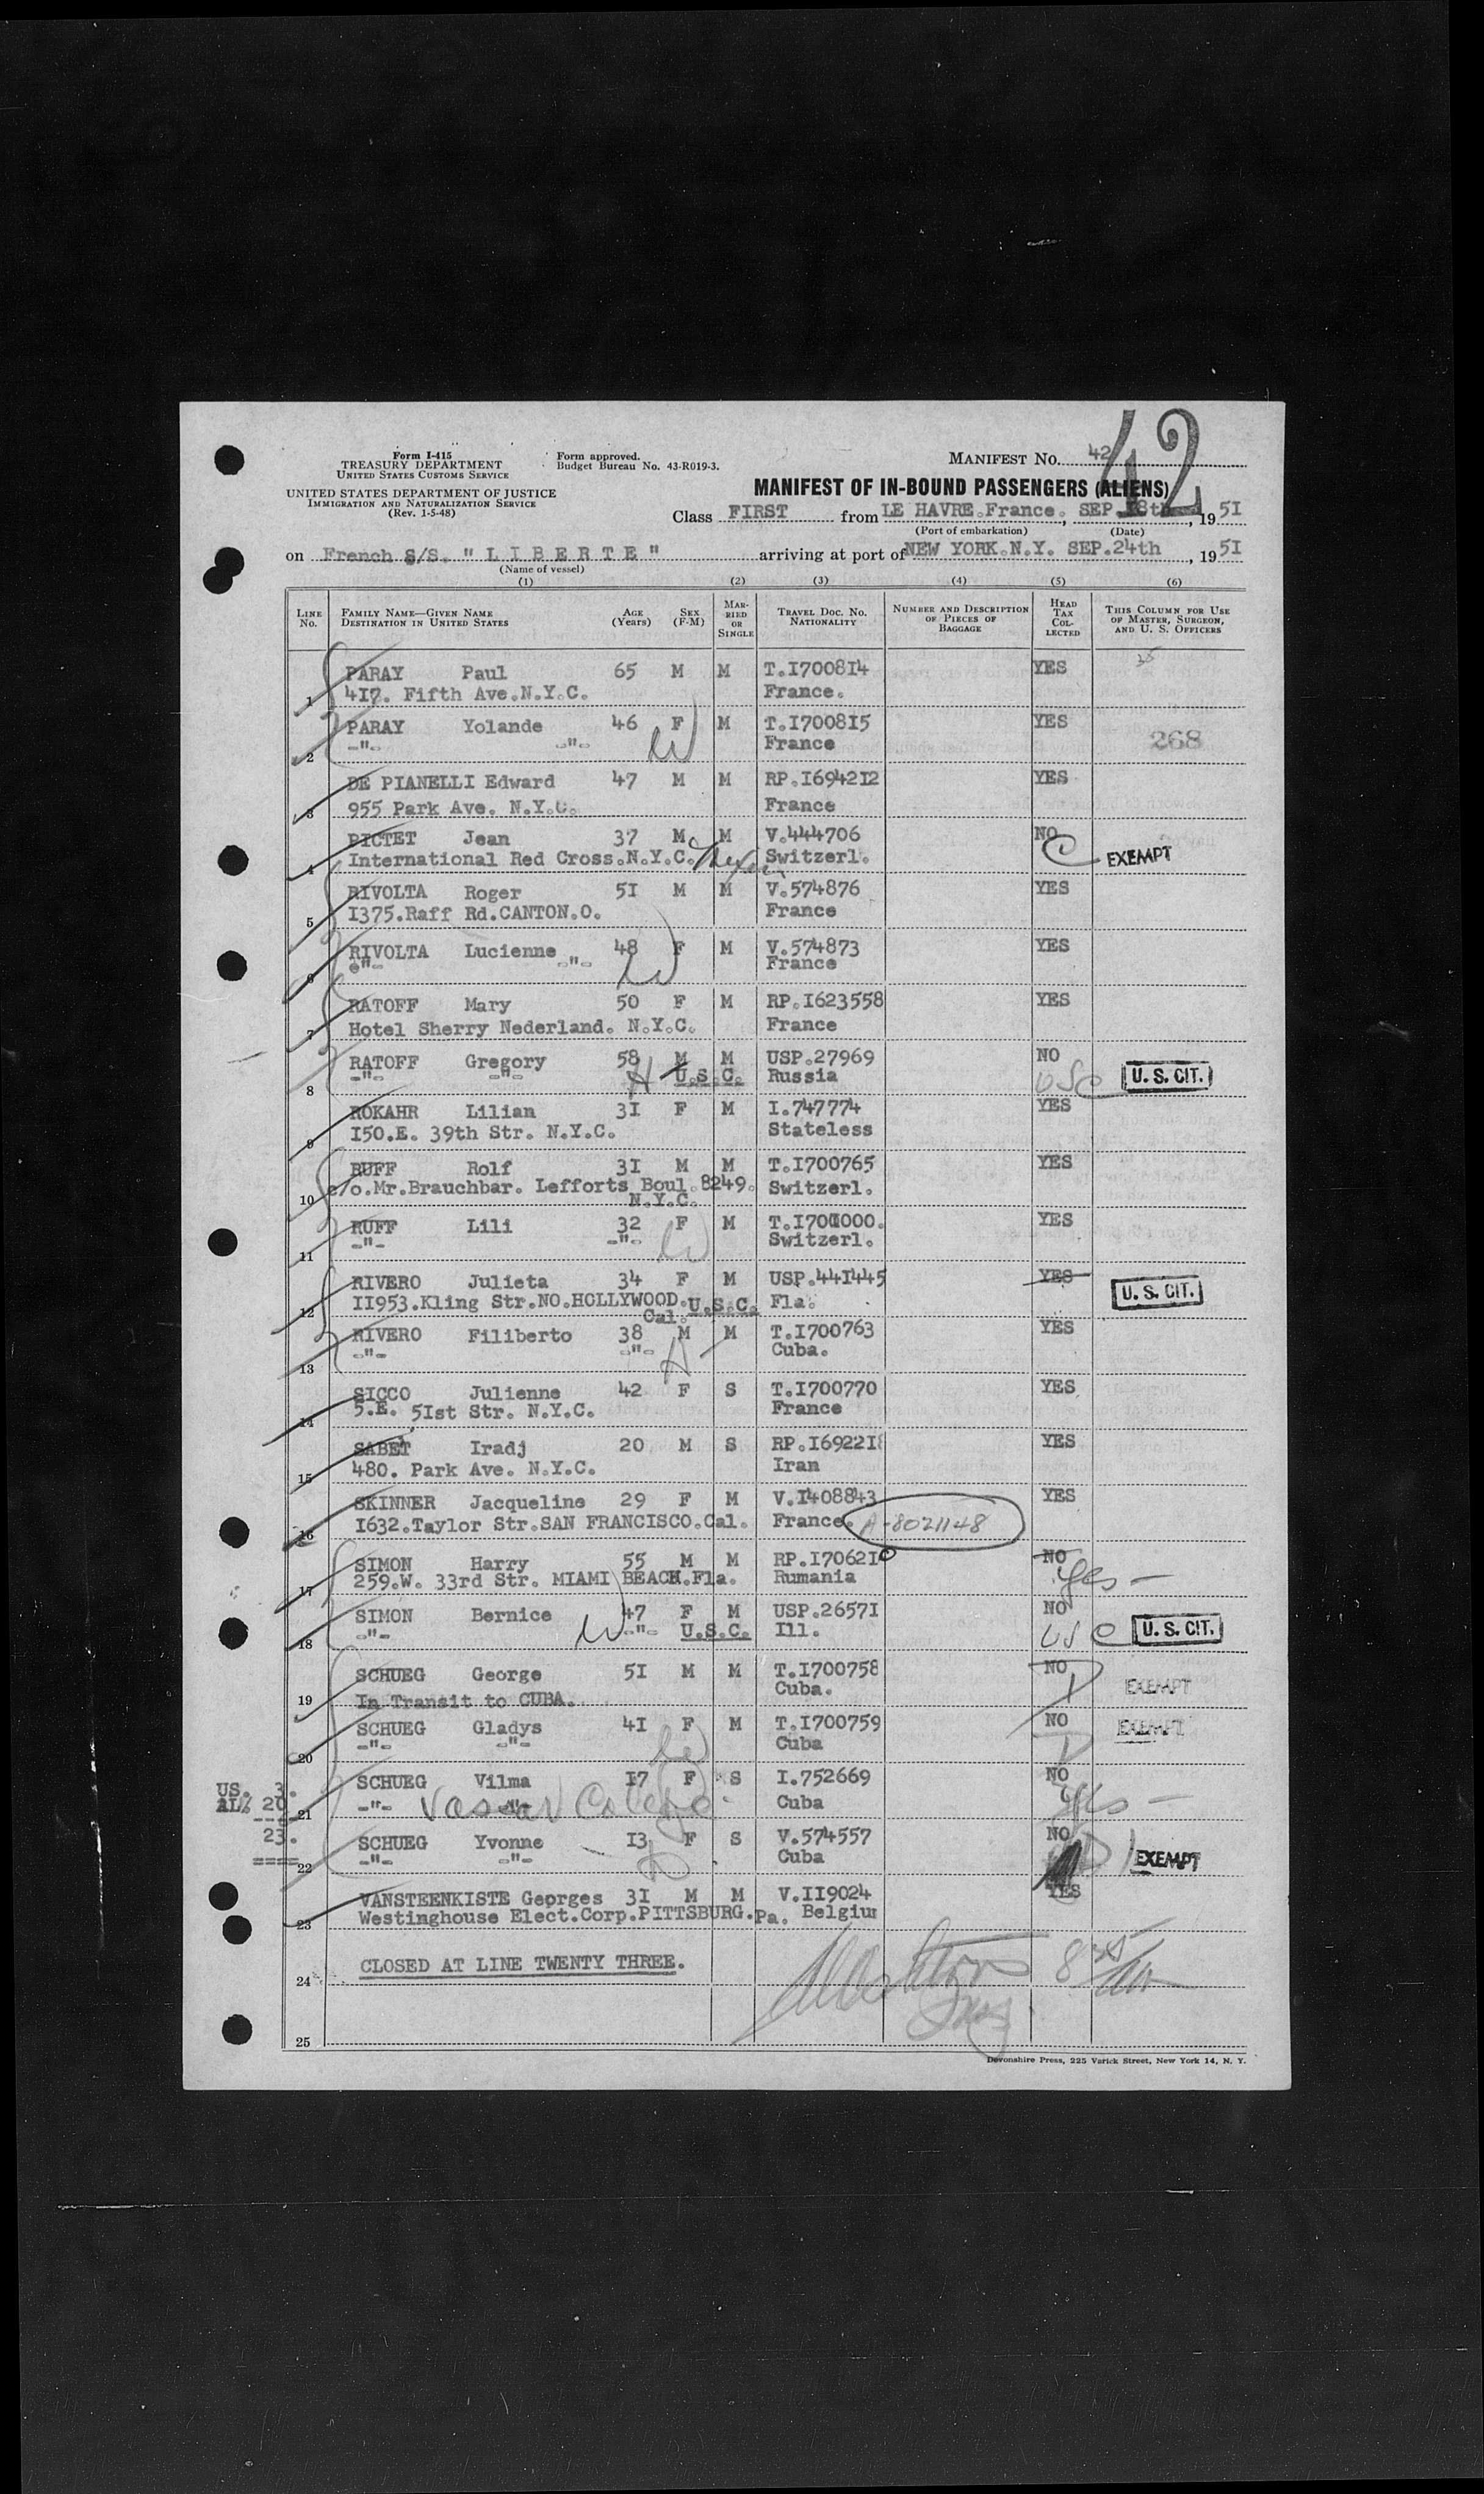 42
Form I-415
TREASURY DEPARTMENT
UNITED STATES CUSTOMS SERVICE
Form approved.
Budget Bureau No. 43-R019-3.
MANIFEST NO. 42
UNITED STATES DEPARTMENT OF JUSTICE
IMMIGRATION AND NATURALIZATION SERVICE
(Rev. 1-5-48)
MANIFEST OF IN-BOUND PASSENGERS (ALIENS)
Class FIRST from LE HAVRE.France. , SEP. 18th , 19 5I
(Port of embarkation) (Date)
on French S/S. " L I B E R T E " arriving at port of NEW YORK.N.Y. SEP.24th , 19 5I
(Name of vessel)
(1) (2) (3) (4) (5) (6)
LINE No. FAMILY NAME—GIVEN NAME DESTINATION IN UNITED STATES AGE (Years) SEX (F-M) MARRIED OR SINGLE TRAVEL DOC. NO. NATIONALITY NUMBER AND DESCRIPTION OF PIECES OF BAGGAGE HEAD TAX COLLECTED THIS COLUMN FOR USE OF MASTER, SURGEON, AND U. S. OFFICERS
PARAY Paul 65 M M T.I700814 YES
1 417. Fifth Ave.N.Y.C. France.
PARAY Yolande 46 F M T.I700815 YES
2 -"- -"- W France 268
DE PIANELLI Edward 47 M M RP.I694212 YES
3 955 Park Ave. N.Y.C. France
PICTET Jean 37 M M V.444706 NO
4 International Red Cross.N.Y.C. Switzerl. EXEMPT
RIVOLTA Roger 5I M M V.574876 YES
5 I375.Raff Rd.CANTON.O. France
RIVOLTA Lucienne 48 F M V.574873 YES
6 -"- -"- W France
RATOFF Mary 50 F M RP.I623558 YES
7 Hotel Sherry Nederland. N.Y.C. France
RATOFF Gregory 58 M M USP.27969 NO
8 -"- -"- H U.S.C. Russia USC U. S. CIT.
ROKAHR Lilian 3I F M I.747774 YES
9 I50.E. 39th Str. N.Y.C. Stateless
RUFF Rolf 3I M M T.I700765 YES
10 c/o.Mr.Brauchbar. Lefforts Boul.8249. Switzerl.
N.Y.C.
RUFF Lili 32 F M T.I701000. YES
11 -"- -"- W Switzerl.
RIVERO Julieta 34 F M USP.44I445 YES
12 II953.Kling Str.NO.HOLLYWOOD. U.S.C. Fla. U. S. CIT.
Cal.
RIVERO Filiberto 38 M M T.I700763 YES
13 -"- -"- H Cuba.
SICCO Julienne 42 F S T.I700770 YES
14 5.E. 5Ist Str. N.Y.C. France
SABET Iradj 20 M S RP.I69221 YES
15 480. Park Ave. N.Y.C. Iran
SKINNER Jacqueline 29 F M V.I408843 YES
16 I632.Taylor Str.SAN FRANCISCO.Cal. France. A-8021148
SIMON Harry 55 M M RP.I706210 NO
17 259.W. 33rd Str. MIAMI BEACH.Fla. Rumania Yes -
SIMON Bernice 47 F M USP.2657I NO
18 -"- W -"- U.S.C. Ill. USC U. S. CIT.
SCHUEG George 5I M M T.I700758 NO
19 In Transit to CUBA. Cuba. EXEMPT
SCHUEG Gladys 4I F M T.I700759 NO
20 -"- -"- W Cuba EXEMPT
US. 3. SCHUEG Vilma I7 F S I.752669 NO
AL. 20 21 -"- -"- Vassar College Cuba Yes -
23. SCHUEG Yvonne I3 F S V.574557 NO
==== 22 -"- -"- D Cuba EXEMPT
VANSTEENKISTE Georges 3I M M V.II9024 YES
23 Westinghouse Elect.Corp.PITTSBURG.Pa. Belgium
24 CLOSED AT LINE TWENTY THREE.
25
Devonshire Press, 225 Varick Street, New York 14, N. Y.